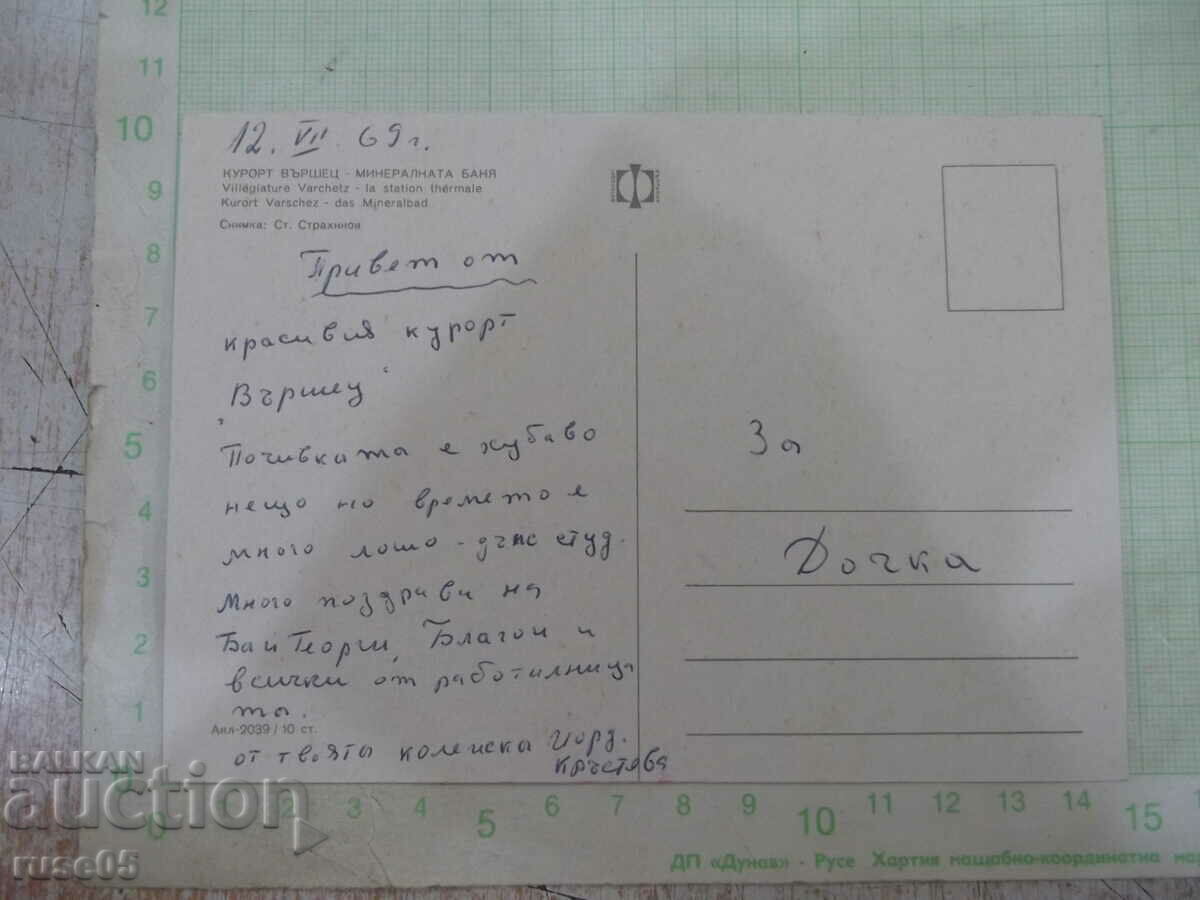 12. VII. 69 г.
КУРОРТ ВЪРШЕЦ - МИНЕРАЛНАТА БАНЯ
Villégiature Varchetz - la station thérmale
Kurort Varschez - das Mineralbad
Снимка: Ст. Страхинов
Привет от
красивия курорт
„Вършец“
Почивката е хубаво
нещо но времето е
много лошо - дъжд студ.
Много поздрави на
Бай Георги, Благой и
всички от работилница
та.
Аил-2039 / 10 ст.
от твоята колежка Йорд.
Кръстева
За
Дочка
12
11
10
9
8
7
6
5
4
3
2
1
0
1 2 3 4 5 6 7 8 9 10 11 12 13 14 15
ДП «Дунав» - Русе Хартия мащабно-координатна
BALKAN
auction
ruse05